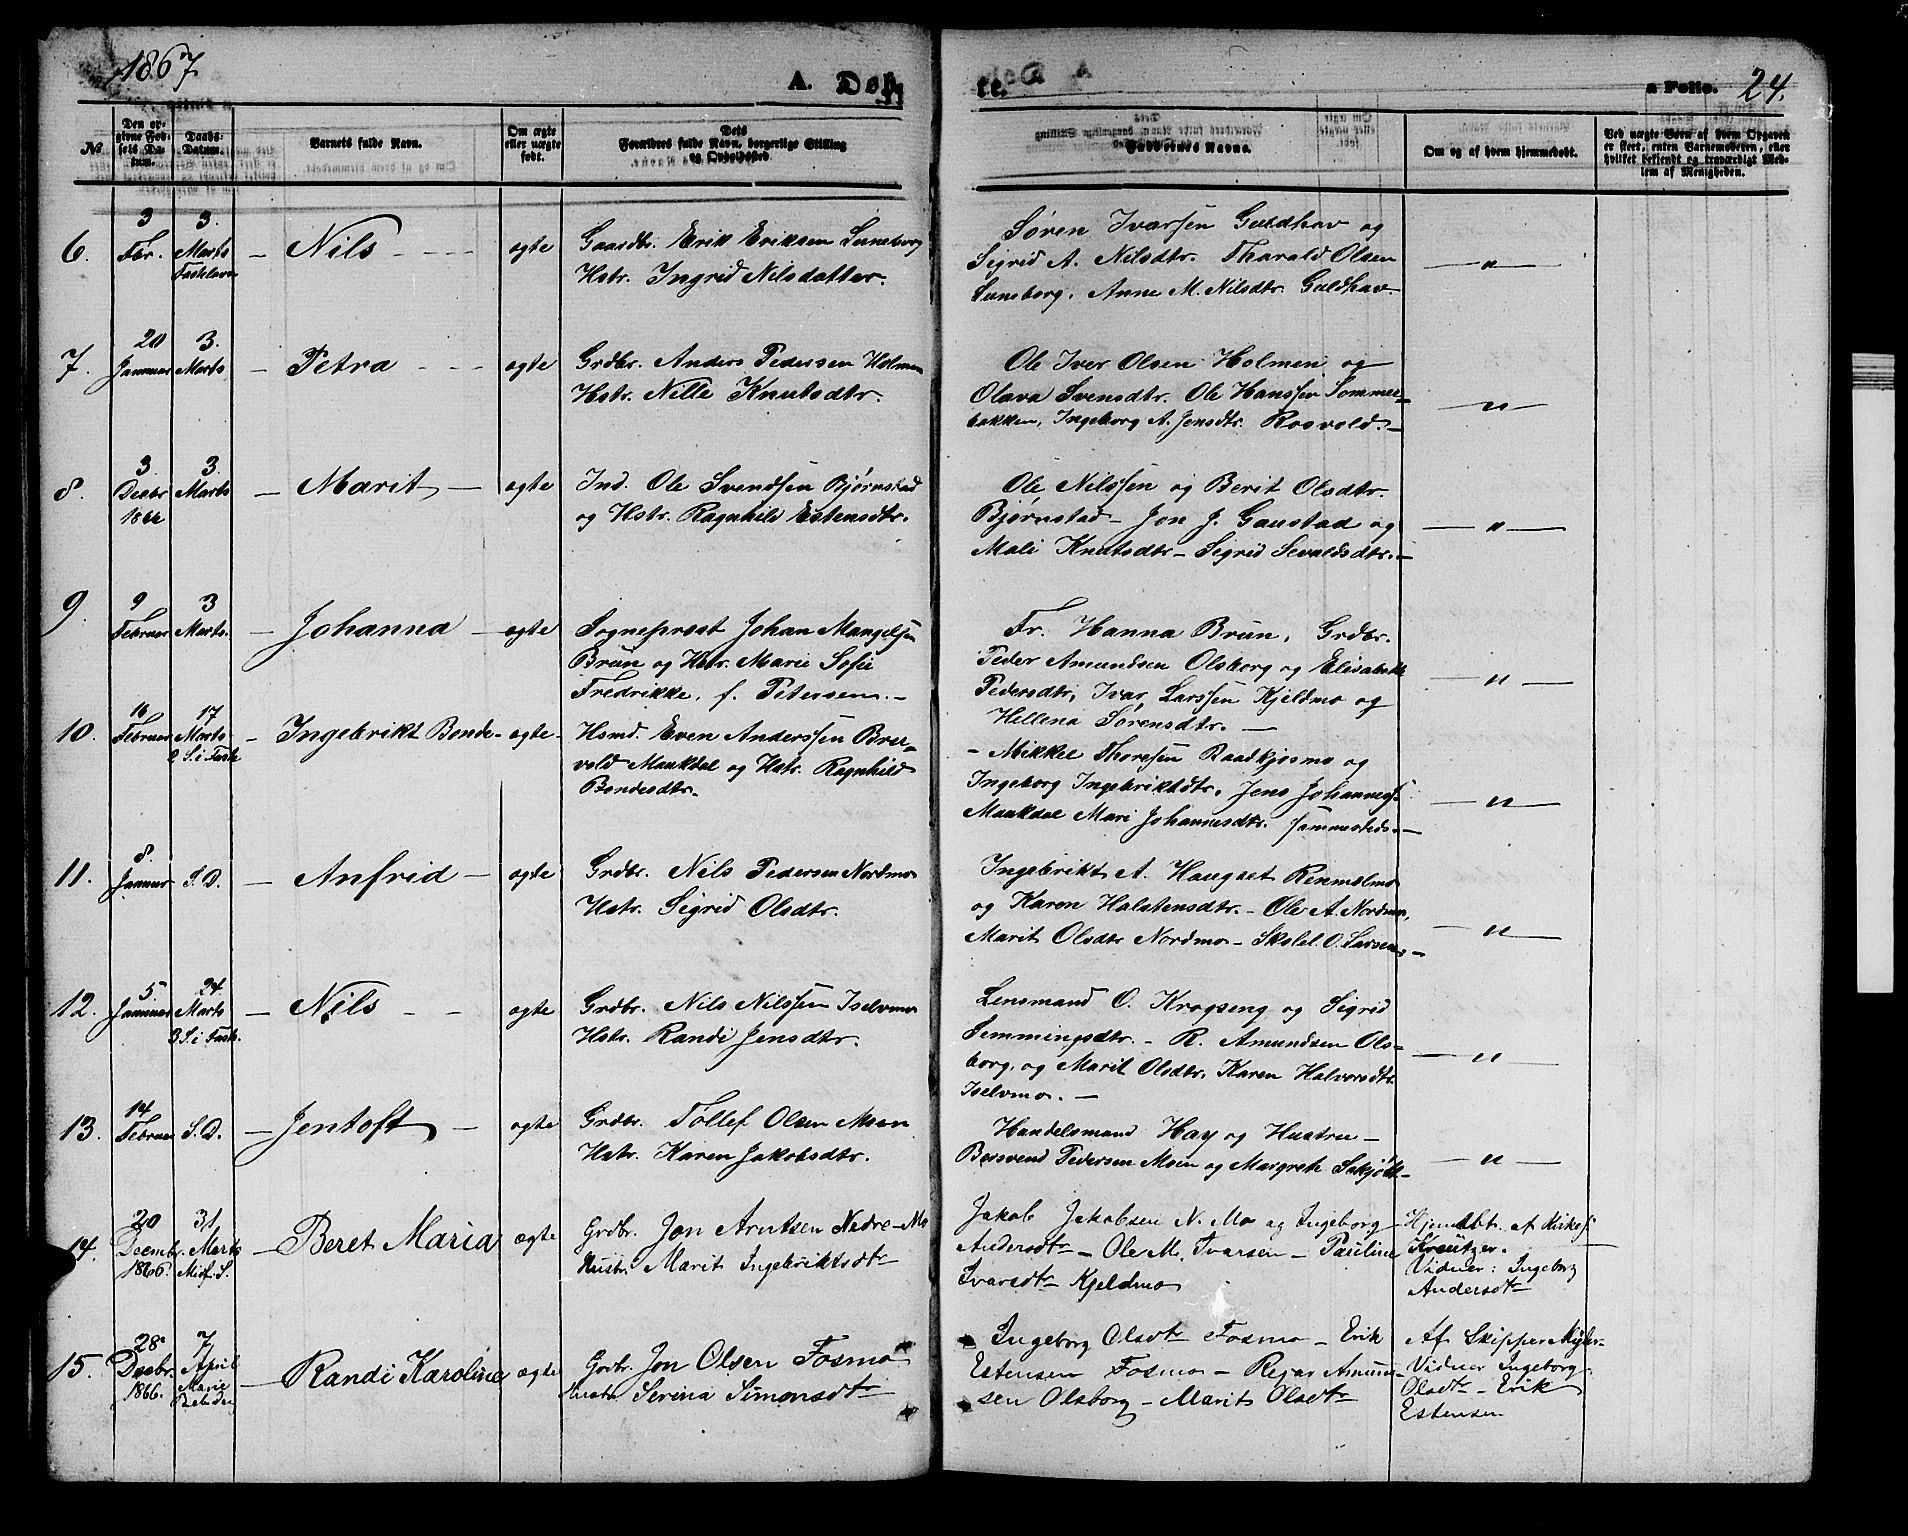 1867
A. Døb
te.
a Folio. 24.
№
Den op-
givne Fød-
sels Da-
tum.
Daabs-
Datum.
Barnets fulde Navn.
Om ægte
eller uægte
født.
Dets
Forældres fulde Navn, borgerlige Stilling
og Opholdssted.
Faddernes Navne.
Om og af hvem hjemmedøbt.
Ved uægte Børn af hvem Opgaven
er skeet, enten Barnemoderen, eller
hvilket bekjendt og troværdigt Med-
lem af Menigheden.
6.
3
Febr.
3.
Marts
Fastelavn
Nils
ægte
Gaardbr. Erik Eriksen Luneborg
Hstr. Ingrid Nilsdatter.
Søren Ivarsen Guldhav og
Sigrid A. Nilsdtr. Tharald Olsen
Luneborg. Anne M. Nilsdtr. Guldhav.
— " —
7.
20
Januar
3.
Marts
Petra
ægte
Grdbr. Anders Pedersen Holmen
Hstr. Nille Knutsdtr.
Ole Iver Olsen Holmen og
Olava Svensdtr. Ole Hanssen Sommer-
bakken, Ingeborg A. Jensdtr. Rosvold.
— " —
8.
3.
Decbr
1866
3.
Marts
Marit
ægte
Ind. Ole Svendsen Bjørnstad
og Hstr. Ragnhild Estensdtr.
Ole Nilssen og Berit Olsdtr.
Bjørnstad – Jon J. Gaustad og
Mali Knutsdtr – Sigrid Sevaldsdtr.
— " —
9.
9
Februar
3
Marts.
Johanna
ægte
Sogneprest Johan Mangelsen
Brun og Hstr. Marie Sofie
Fredrikke, f. Petersen.
Fr. Hanna Brun, Grdbr.
Peder Amundsen Olsborg og Elisabeth
Pedersdtr, Ivar Larssen Kjeldmo og
Hellena Sørensdtr.
— " —
10.
16
Februar
17
Marts
2 S. i Faste
Ingebrikt Bonde
ægte
Hsmd. Even Anderssen Brer-
vold Maukdal og Hstr. Ragnhild
Bondesdtr.
Mikkel Thoresen Raadkjosmo og
Ingeborg Ingebriktsdtr. Jens Johanness
Maukdal Mari Johannesdtr. sammesteds.
— " —
11.
8.
Januar
S. D.
Anfrid
ægte
Grdbr. Nils Pedersen Nordmo
Hstr. Sigrid Olsdtr.
Ingebrikt A. Haugset Renmelmo
og Karen Halstensdtr. – Ole A. Nordmo,
Marit Olsdtr Nordmo – Skolel. O. Larsen
— " —
12.
5.
Januar
24.
Marts
3 S. i Faste.
Nils
ægte
Grdbr. Nils Nilssen Iselvmo
Hstr. Randi Jensdtr.
Lensmand O. Krogseng og Sigrid
Semmingsdtr. – R. Amundsen Ols-
borg, og Marit Olsdtr, Karen Halvorsdtr
Iselvmo.
— " —
13.
14
Februar
S. D.
Jentoft
ægte
Grdbr. Tollef Olsen Moen
Hstr. Karen Jakobsdtr.
Handelsmand Hay og Hustru –
Bersvend Pedersen Moen og Margrete
— " —
14.
20
Decembr.
1866.
31
Marts
Midf. S.
Beret Maria
ægte
Grdbr. Jon Arntsen Nedre-Mo
Hustr. Marit Ingebriktsdtr
Jakob Jakobsen N. Mo og Ingeborg
Andersdtr – Ole M. Ivarsen – Pauline
Ivarsdtr Kjeldmo
Hjemdbt. af Kirkes.
Kreutzer.
Vidner: Ingeborg
Andersdtr
15.
28
Decbr.
1866.
7
April
Marie
Bebudg
Randi Karoline
ægte
Gdbr. Jon Olsen Fosmo
Hustr. Serina Simonsdtr
Ingeborg Olsdtr Fosmo – Erik
Estensen Fosmo – Rejar Amund-
sen Olsborg – Marit Olsdtr
Af Skipper
Vidner Ingeborg
Olsdtr – Erik
Estensen